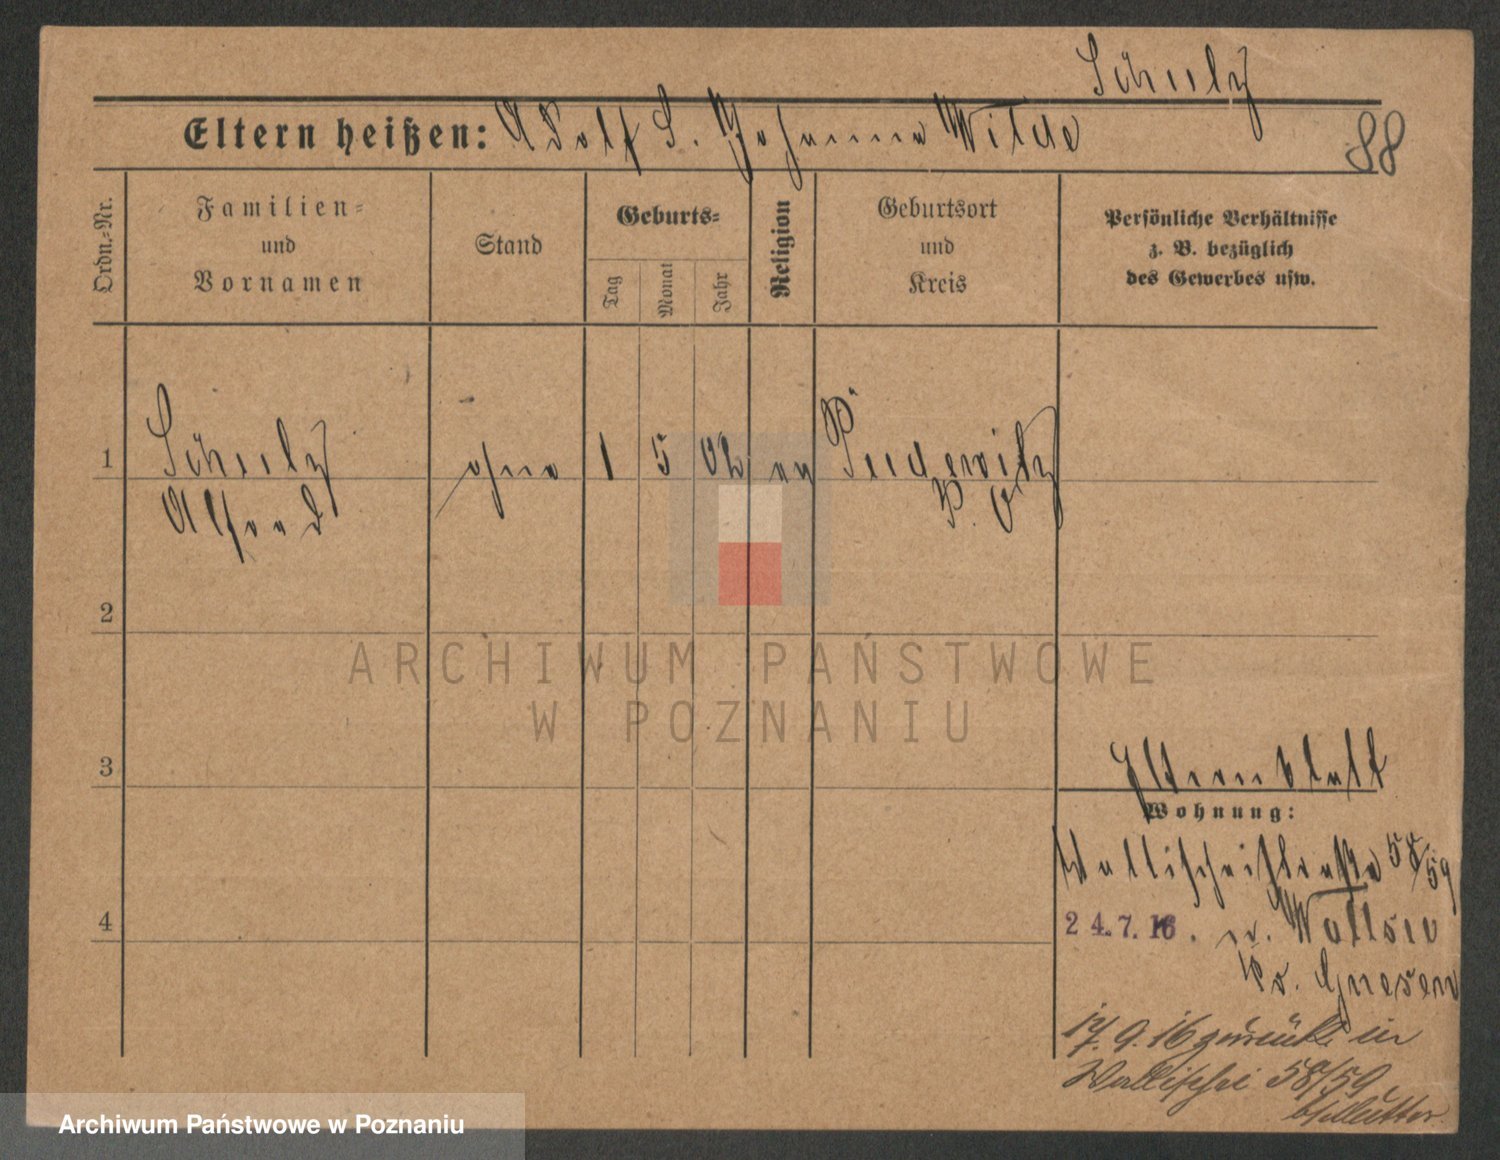 Schulz
Eltern heißen: Adolf S. Johanna Wilde
88
Ordn.-Nr.
Familien-
und
Vornamen
Stand
Geburts-
Tag
Monat
Jahr
Religion
Geburtsort
und
Kreis
Persönliche Verhältnisse
z. B. bezüglich
des Gewerbes usw.
1 Schulz ohne 1 5 02 ev Pudewitz
Alfred P. O
2
ARCHIWUM PAŃSTWOWE
W POZNANIU
3
Elternblatt
Wohnung:
Wallischeistraße 58/59
4
24.7.16. n. Wollsin
Kr. Gnesen
17.9.16 zurück in
Wallischei 58/59
b/Mutter
Archiwum Państwowe w Poznaniu